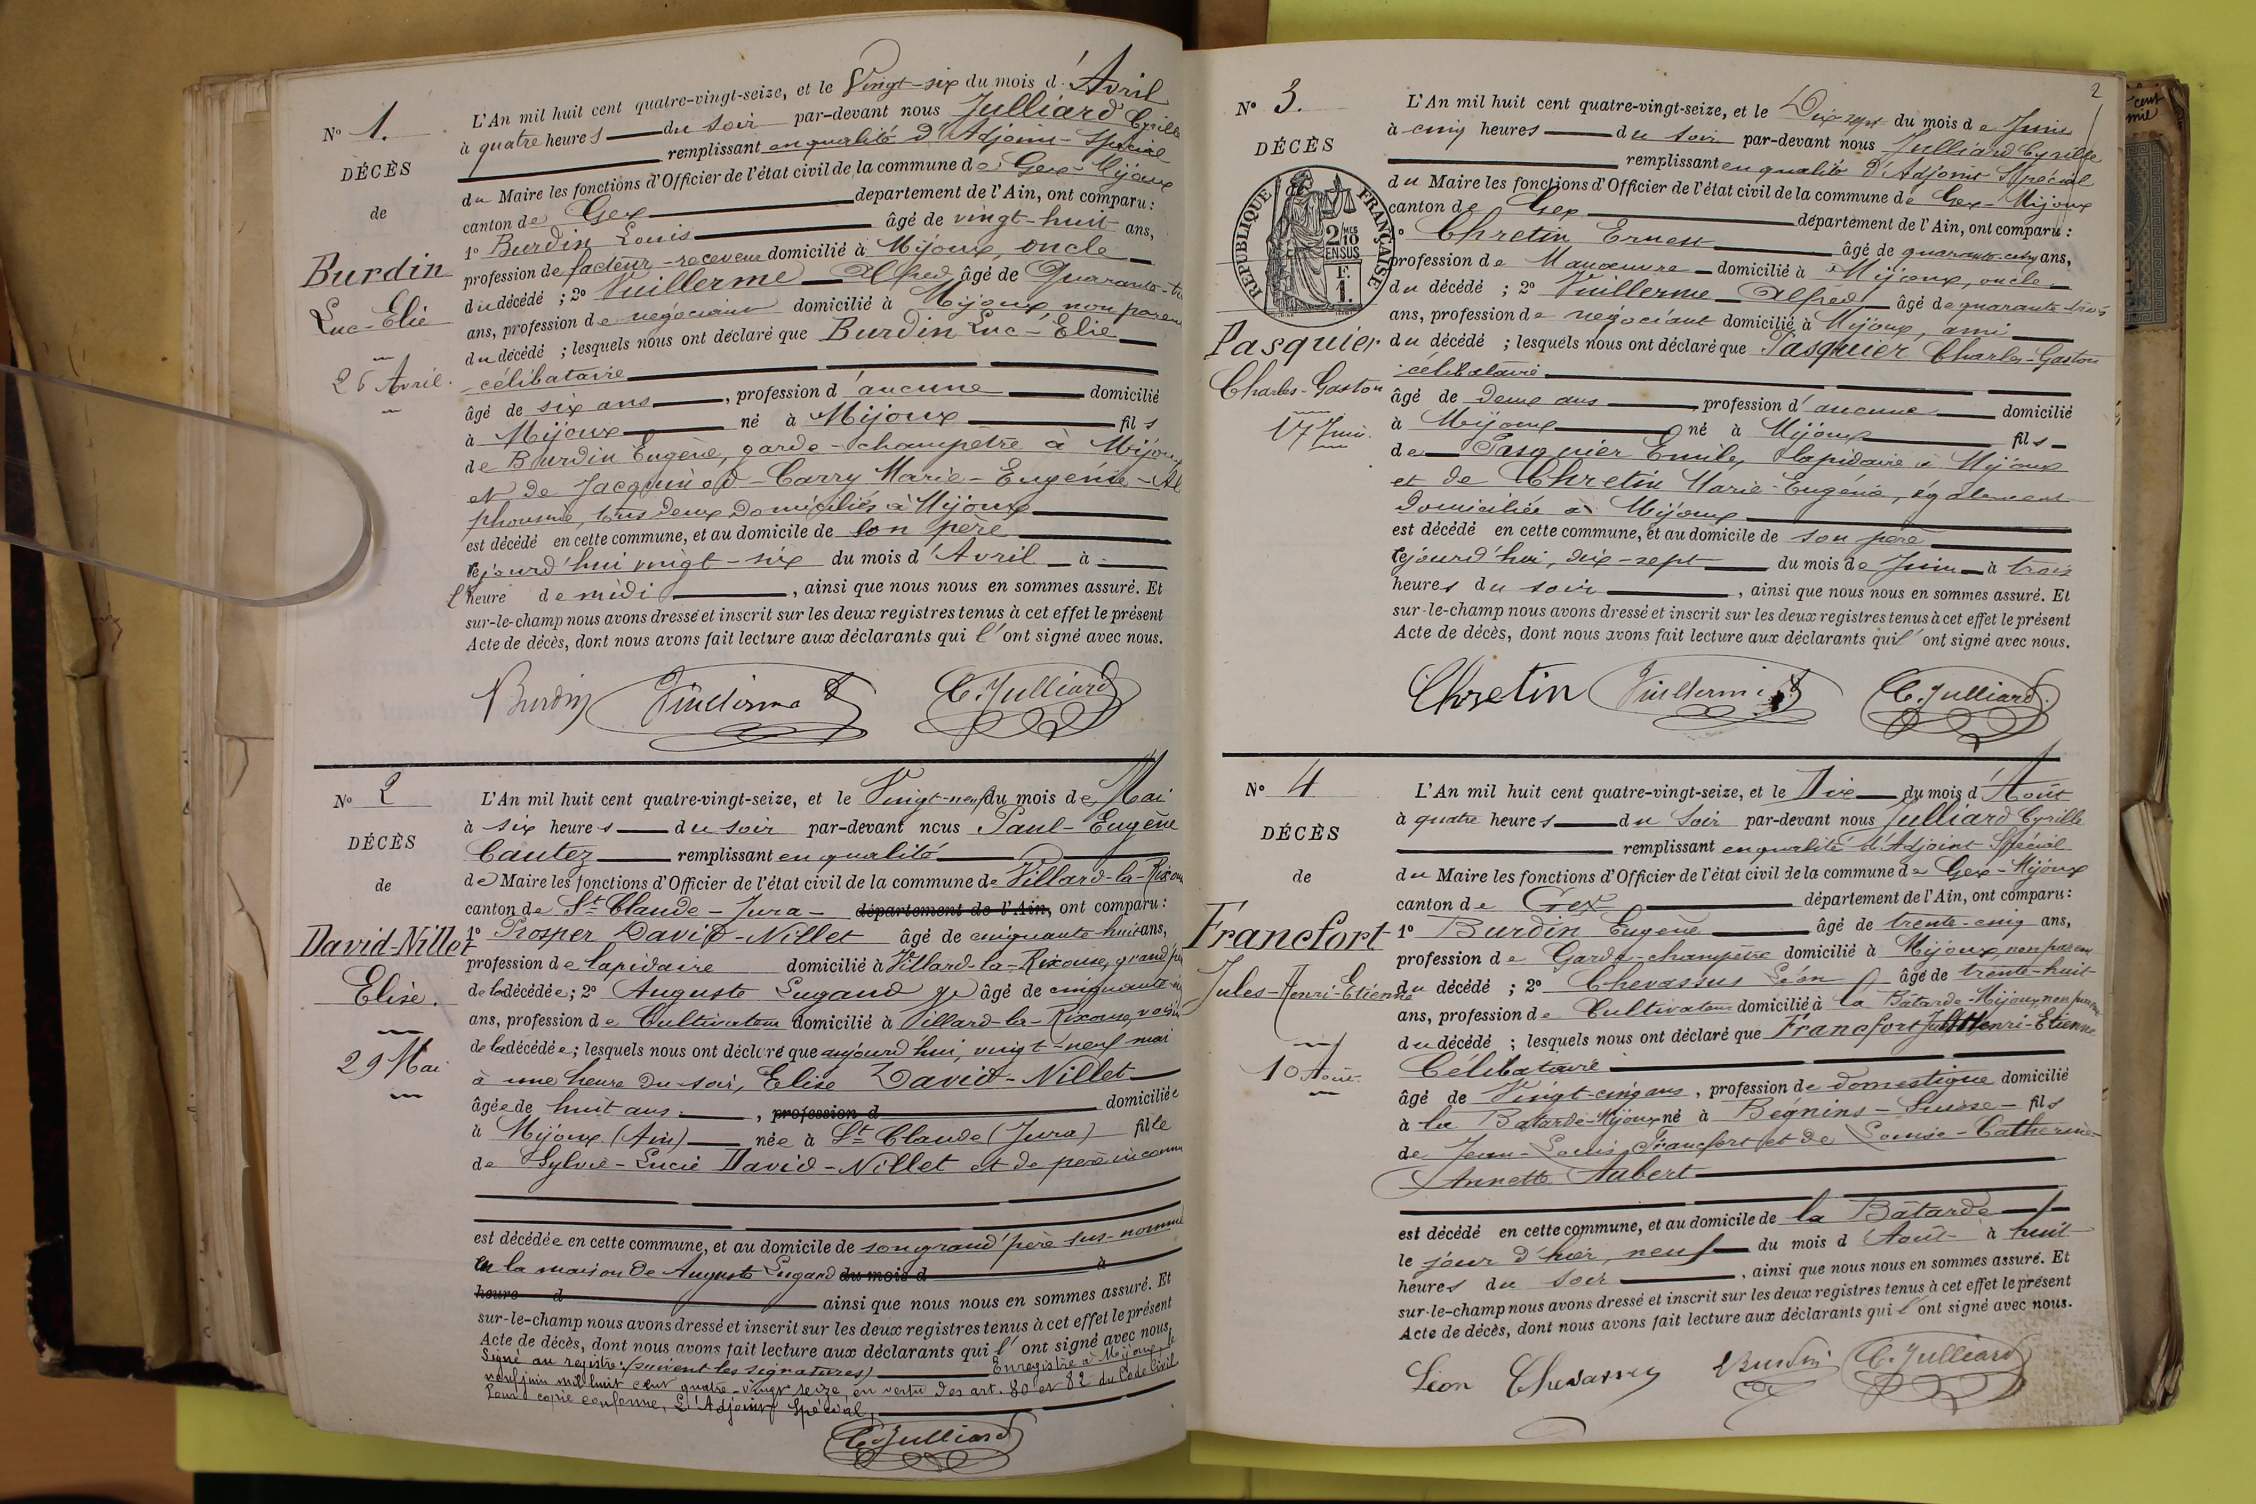 N° 1.
DÉCÈS
de
Burdin
Luc-Elie
26 Avril.
L'An mil huit cent quatre-vingt-seize, et le Vingt-six du mois d'Avril
à quatre heures du soir par-devant nous Julliard Cyrille
remplissant en qualité d'Adjoint-Spécial
du Maire les fonctions d'Officier de l'état civil de la commune de Gex-Mijoux
canton de Gex département de l'Ain, ont comparu :
1° Burdin Louis âgé de vingt-huit ans,
profession de facteur-receveur domicilié à Mijoux, oncle
du décédé ; 2° Vuillerme Alfred, âgé de Quarante-
ans, profession de négociant domicilié à Mijoux, non parent
du décédé ; lesquels nous ont déclaré que Burdin Luc-Elie
célibataire
âgé de six ans, profession d'aucune domicilié
à Mijoux né à Mijoux fils
de Burdin Eugène, garde-champêtre à Mijoux
et de Jacquinod-Carry Marie-Eugénie-Al
phonsine, tous deux domiciliés à Mijoux
est décédé en cette commune, et au domicile de son père
cejourd'hui vingt-six du mois d'Avril à
l'heure de midi, ainsi que nous nous en sommes assuré. Et
sur-le-champ nous avons dressé et inscrit sur les deux registres tenus à cet effet le présent
Acte de décès, dont nous avons fait lecture aux déclarants qui l'ont signé avec nous.
Burdin Vuillerme C. Julliard
N° 2
DÉCÈS
de
David-Nillet
Elise.
29 Mai
L'An mil huit cent quatre-vingt-seize, et le Vingt-neuf du mois de Mai
à six heures du soir par-devant nous Paul-Eugène
Cautez remplissant en qualité
de Maire les fonctions d'Officier de l'état civil de la commune de Villard-la-Rixouse
canton de St Claude-Jura- département de l'Ain, ont comparu :
1° Prosper David-Nillet âgé de cinquante-huit ans,
profession de lapidaire domicilié à Villard-la-Rixouse, grand père
de la décédée ; 2° Auguste Lugand âgé de cinquante
ans, profession de Cultivateur domicilié à Villard-la-Rixouse, voisin
de la décédée ; lesquels nous ont déclaré que aujourd'hui, vingt-neuf mai
à une heure du soir, Elise David-Nillet
âgée de huit ans, profession d domiciliée
à Mijoux (Ain) née à St Claude (Jura) fille
de Sylvie-Lucie David-Nillet et de père inconnu
est décédée en cette commune, et au domicile de son grand'père sus-nommé
en la maison de Auguste Lugand du mois d à
heure d ainsi que nous nous en sommes assuré. Et
sur-le-champ nous avons dressé et inscrit sur les deux registres tenus à cet effet le présent
Acte de décès, dont nous avons fait lecture aux déclarants qui l'ont signé avec nous.
Signé au registre : (suivent les signatures) Enregistré à Mijoux, le
neuf juin mil huit cent quatre-vingt seize, en vertu des art. 80 et 82 du Code Civil
Pour copie conforme, L'Adjoint Spécial,
C. Julliard
2
N° 3.
DÉCÈS
RÉPUBLIQUE FRANÇAISE
2 MES 10
EN SUS
F.
1.
Pasquier
Charles-Gaston
17 Juin.
L'An mil huit cent quatre-vingt-seize, et le Dix sept du mois de Juin
à cinq heures du soir par-devant nous Julliard Cyrille
remplissant en qualité d'Adjoint Spécial
du Maire les fonctions d'Officier de l'état civil de la commune de Gex-Mijoux
canton de Gex département de l'Ain, ont comparu :
1° Chretin Ernest âgé de quarante-cinq ans,
profession de Manœuvre domicilié à Mijoux, oncle
du décédé ; 2° Vuillerme Alfred âgé de quarante-trois
ans, profession de négociant domicilié à Mijoux, ami
du décédé ; lesquels nous ont déclaré que Pasquier Charles-Gaston
célibataire
âgé de deux ans profession d'aucune domicilié
à Mijoux né à Mijoux fils
de Pasquier Emile, lapidaire à Mijoux
et de Chretin Marie-Eugénie, également
domiciliée à Mijoux
est décédé en cette commune, et au domicile de son père
cejourd'hui, dix-sept du mois de Juin à trois
heures du soir, ainsi que nous nous en sommes assuré. Et
sur-le-champ nous avons dressé et inscrit sur les deux registres tenus à cet effet le présent
Acte de décès, dont nous avons fait lecture aux déclarants qui l'ont signé avec nous.
Chretin Vuillerme C. Julliard
N° 4
DÉCÈS
de
Francfort
Jules-Henri-Etienne
10 Août.
L'An mil huit cent quatre-vingt-seize, et le Dix du mois d'Août
à quatre heures du soir par-devant nous Julliard Cyrille
remplissant en qualité d'Adjoint Spécial
du Maire les fonctions d'Officier de l'état civil de la commune de Gex-Mijoux
canton de Gex département de l'Ain, ont comparu :
1° Burdin Eugène âgé de trente-cinq ans,
profession de Garde-champêtre domicilié à Mijoux, non parent
du décédé ; 2° Chevassus Léon âgé de trente-huit
ans, profession de Cultivateur domicilié à la Bâtarde-Mijoux, non parent
du décédé ; lesquels nous ont déclaré que Francfort Jules Henri-Etienne
Célibataire
âgé de Vingt-cinq ans, profession de domestique domicilié
à la Batarde-Mijoux né à Bégnins-Suisse- fils
de Jean-Louis Francfort et de Louise-Catherine-
Annette Aubert
est décédé en cette commune, et au domicile de la Bâtarde
le jour d'hier, neuf du mois d Août à huit
heures du soir, ainsi que nous nous en sommes assuré. Et
sur-le-champ nous avons dressé et inscrit sur les deux registres tenus à cet effet le présent
Acte de décès, dont nous avons fait lecture aux déclarants qui l'ont signé avec nous.
Léon Chevassus Burdin C. Julliard
cent